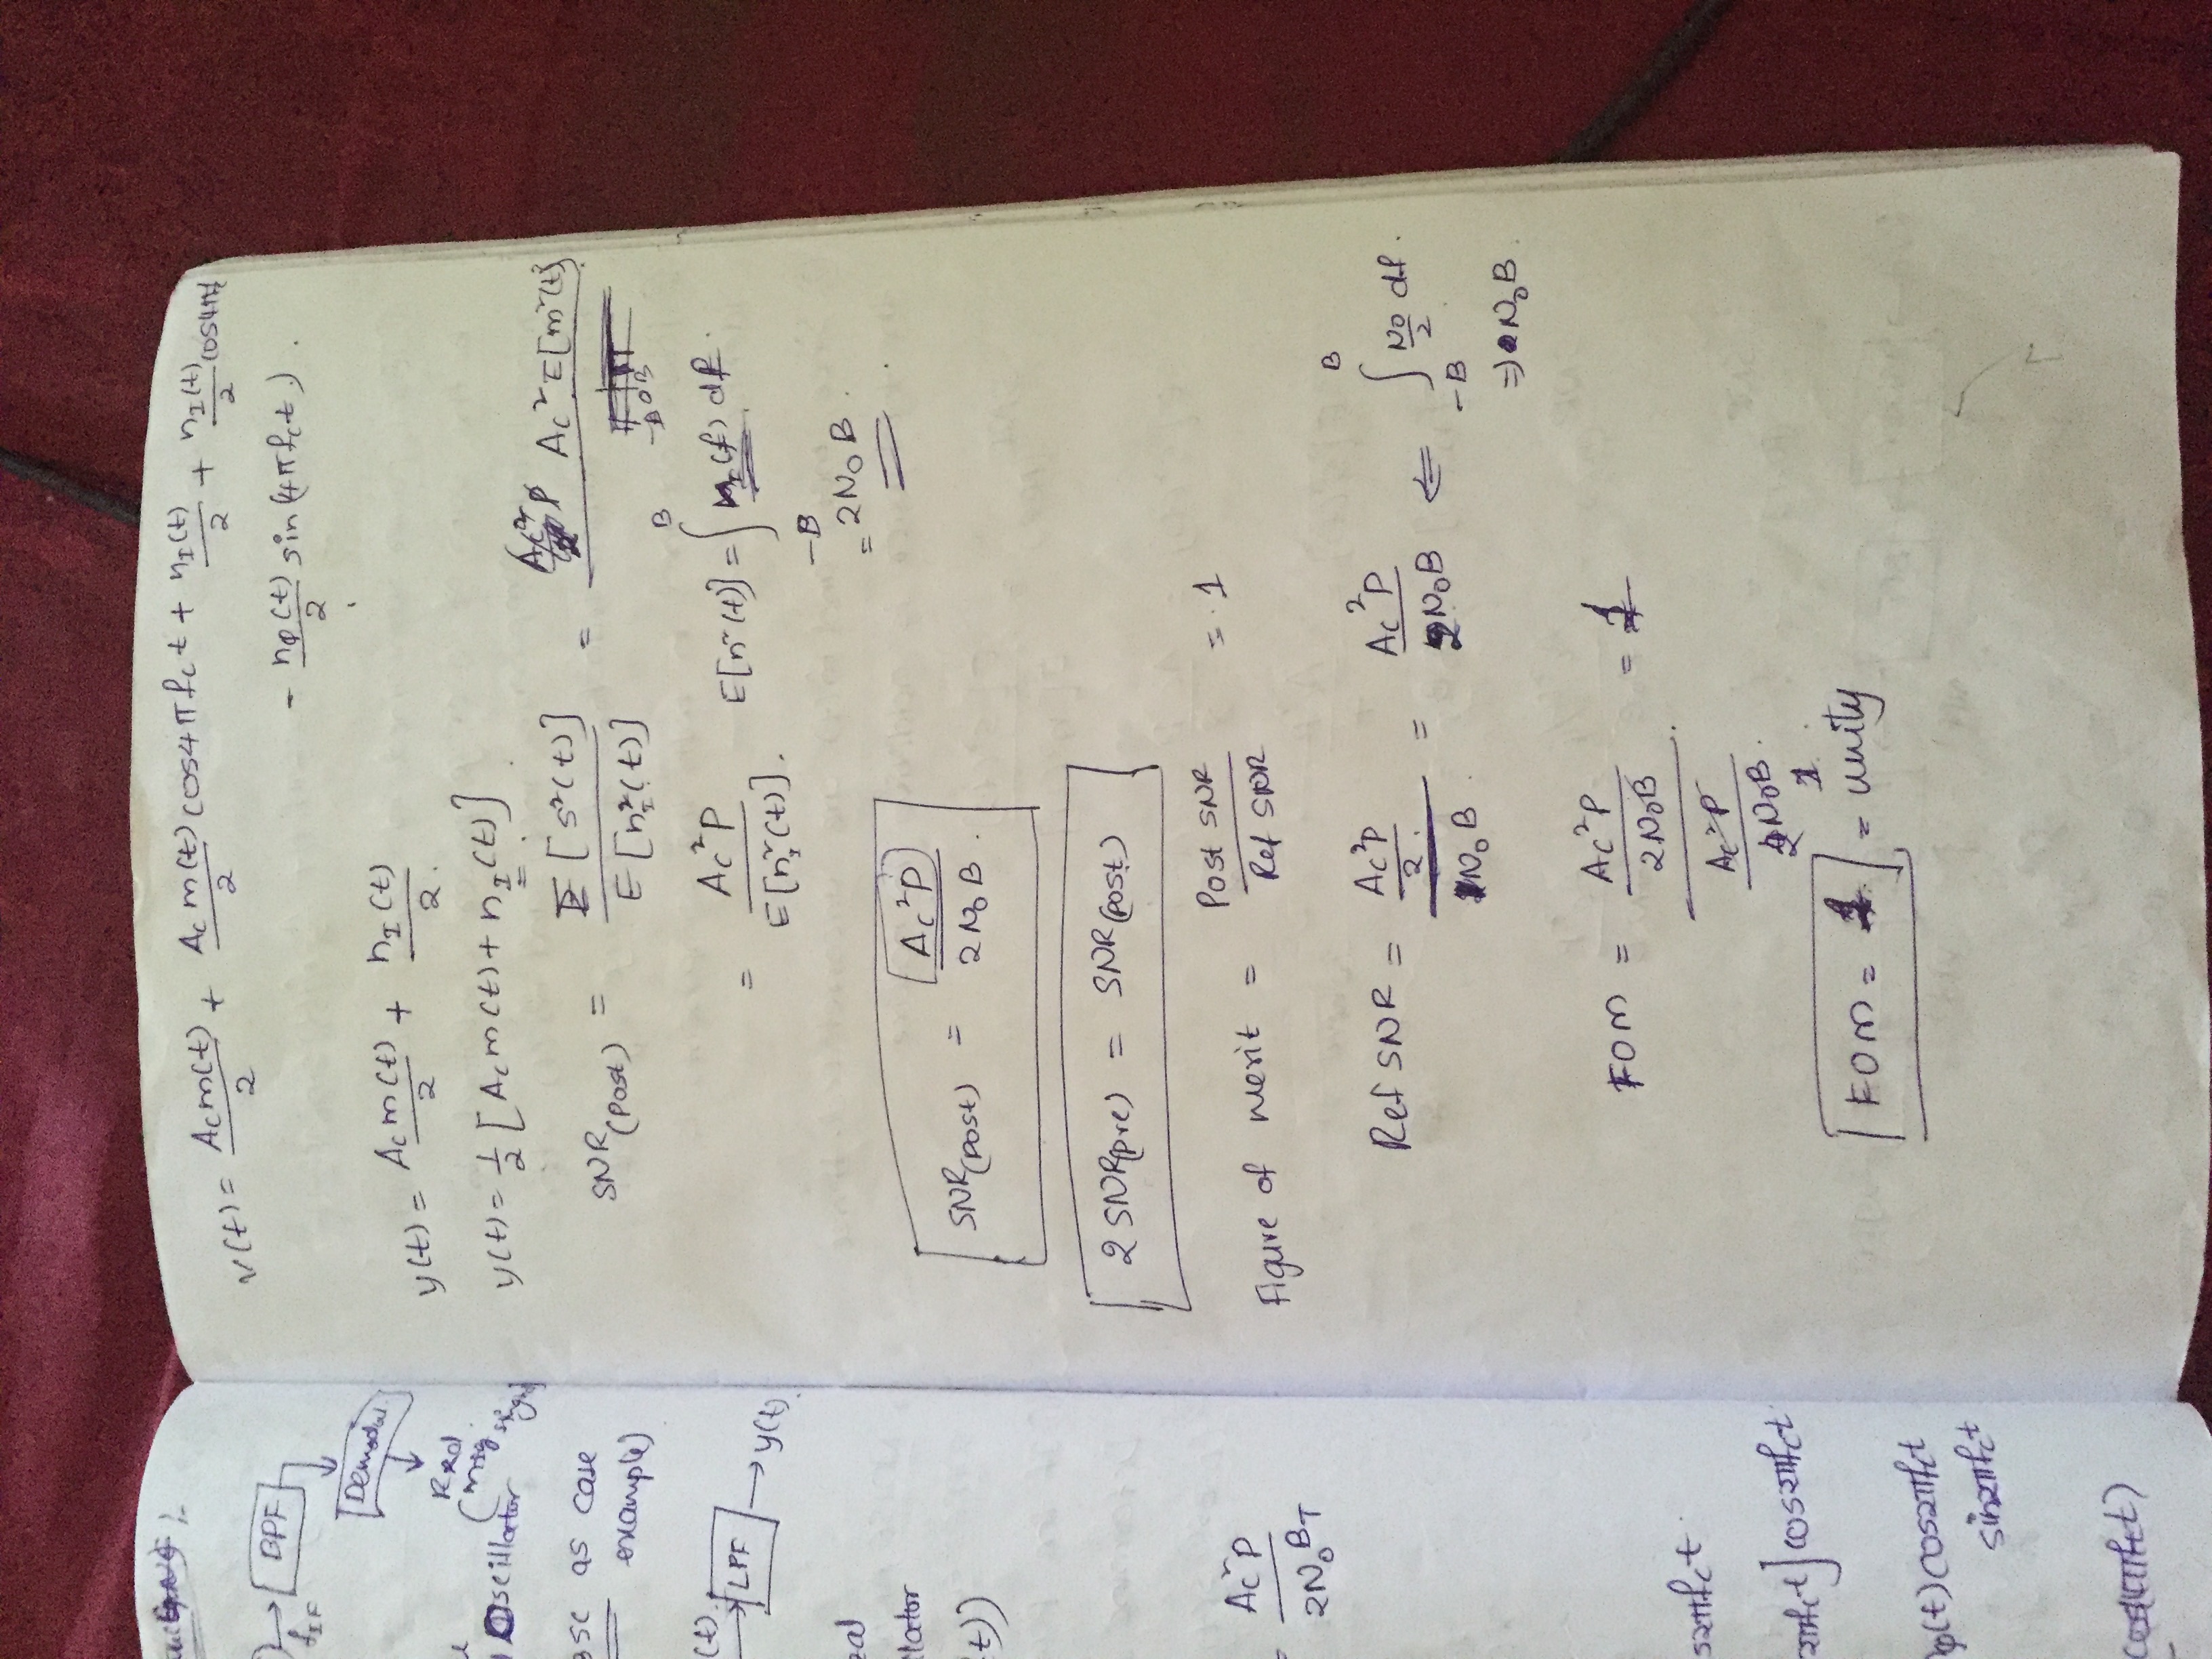 BPF
f_IF
Demodul.
Rxd
(msg signal)
Oscillator
BSC as case
example)
(t)
LPF → y(t)
lator
(t))
= Ac²P / 2N₀B_T
s2πfct.
2πfct] cos2πfct
nφ(t) cos2πfct
sin2πfct
cos(4πfct)
v(t) = Acm(t)/2 + Acm(t)/2 cos4πfct + n_I(t)/2 + n_I(t)/2 cos4πf
- nφ(t)/2 sin(4πfct).
y(t) = Acm(t)/2 + n_I(t)/2.
y(t) = 1/2 [Acm(t) + n_I(t)].
SNR(post) = E[s²(t)] / E[n_I²(t)] = Ac² E[m²(t)]
-B 0 B
= Ac²P / E[n_I²(t)]. E[n²(t)] = ∫_{-B}^{B} n_I(f) df.
= 2N₀B.
SNR(post) = Ac²P / 2N₀B.
2 SNR(pre) = SNR(post)
Figure of merit = Post SNR / Ref SNR = 1
Ref SNR = (Ac²P/2.) / N₀B. = Ac²P / 2N₀B ⇐ ∫_{-B}^{B} N₀/2 df.
⇒ N₀B.
FOM = (Ac²P / 2N₀B) / (Ac²P / 2N₀B.) = 1
1.
FOM = 1 = unity